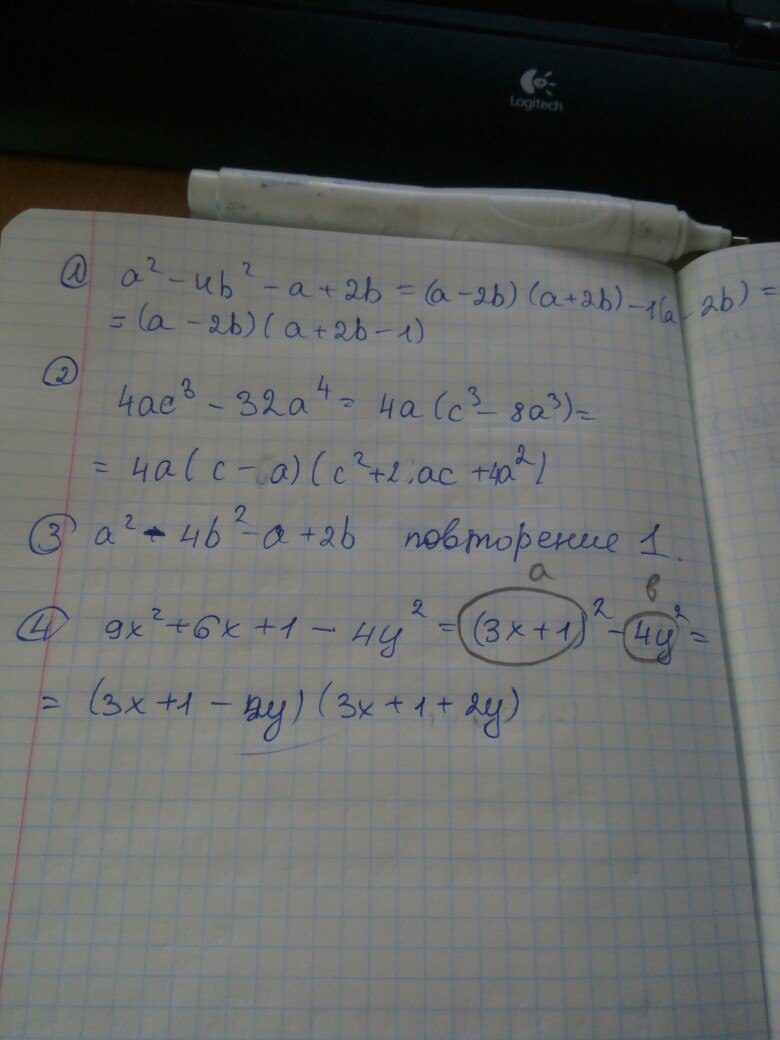 Logitech
① a² - 4b² - a + 2b = (a - 2b) (a + 2b) - 1(a - 2b) =
= (a - 2b) (a + 2b - 1)
②
4ac³ - 32a⁴ = 4a (c³ - 8a³) =
= 4a (c - a) (c² + 2 ac + 4a²)
③ a² - 4b² - a + 2b повторение 1.
a в
④ 9x² + 6x + 1 - 4y² = (3x + 1)² - 4y² =
= (3x + 1 - 2y) (3x + 1 + 2y)